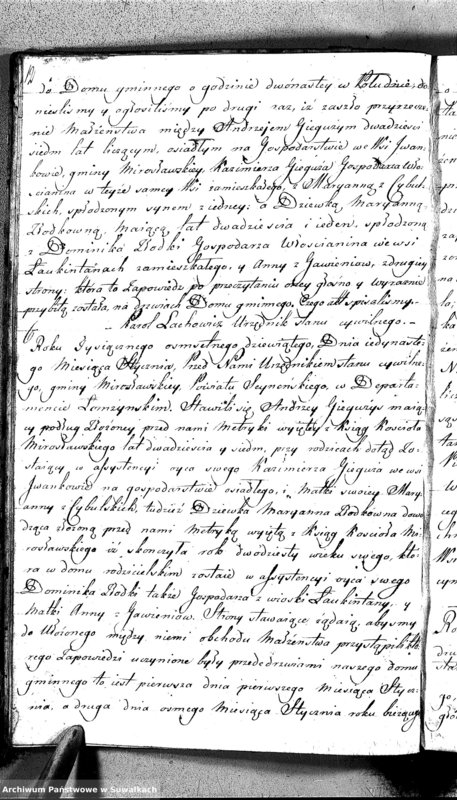 do Domu gminnego o godzinie dwónastey w Południe, do
nieśliśmy y ogłosiliśmy po drugi raz, iż zaszło przyrzecze
nie Małżeństwa między Andrzejem Giegużym dwadzieści
siedm lat liczącym, osiadłym na Gospodarstwie we Wsi Jwan
kowie, gminy Mirosławskiey, Kazimierza Gieguża Gospodarza Wło
ścianina w teyże samey Wsi zamieszkałego, z Maryanną z Cybul
skich, spłodzonym synem z iedney; a Dziewką Maryanną
Dłodkowną, maiącą lat dwadzieścia i ieden, spłodzoną
z Dominika Dłodki Gospodarza Włościanina we wsi
Łaukintanach zamieszkałego, y Anny z Gawieniow, z drugiey
strony; która to Zapowiedz po przeczytaniu oney głosno y wyraznie
przybitą została, na drzwiach Domu gminnego. Czego akt spisaliśmy.
Karol Lachowicz Urzędnik stanu cywilnego.
Roku Tysiącznego osmsetnego dziewiątego, Dnia iedynaste
go Miesiąca Stycznia, Przed Nami Urzędnikiem stanu cywilne
go, gminy Mirosławskiey, Powiatu Seynenskiego, w Departa
mencie Łomżynskim. Stawili się Andrzey Gieguzys maią
cy podług złożoney przed nami Metryki wyiętey z Ksiąg Kościoła
Mirosławskiego lat dwadzieścia y siedm, przy rodzicach dotąd zo
staiący, w assystencyi oyca swego Kazimierza Gieguża we wsi
Jwankowie na gospodarstwie osiadłego, i Matki swoiey Mary
anny z Cybulskich, tudzież Dziewka Maryanna Dłodkowna dowo
dząca złożoną przed nami Metryką wyiętą z Ksiąg Kościoła Mi
rosławskiego iż skonczyła rok dwudziesty wieku swego, któ
ra w domu rodzicielskim zostaie w assystencyi oyca swego
Dominika Dłodki także Gospodarza z wioski Łaukintany, y
Matki Anny z Gawieniow. Strony stawaiące żądaią, abyśmy
do Ułożonego między niemi obchodu Małżenstwa przystąpili któ
rego Zapowiedzi uczynione były przede drzwiami naszego domu
gminnego to iest pierwsza dnia pierwszego Miesiąca Stycz
nia, a druga dnia osmego Miesiąca Stycznia roku bieżącego
Archiwum Państwowe w Suwałkach